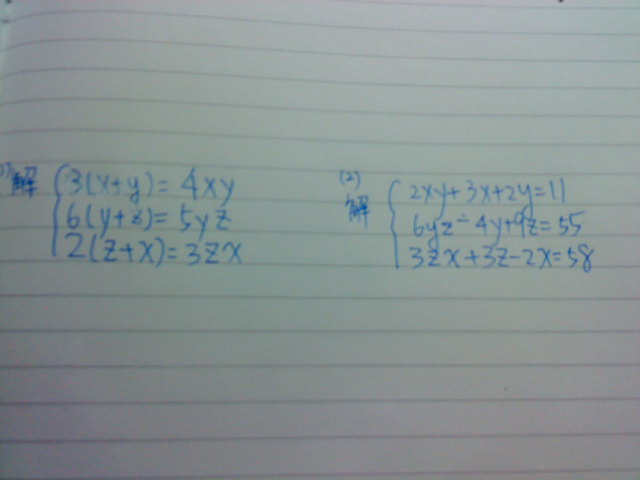 (1)解 3(x+y)=4xy
6(y+z)=5yz
2(z+x)=3zx
(2)
解 2xy+3x+2y=11
6yz-4y+9z=55
3zx+3z-2x=58